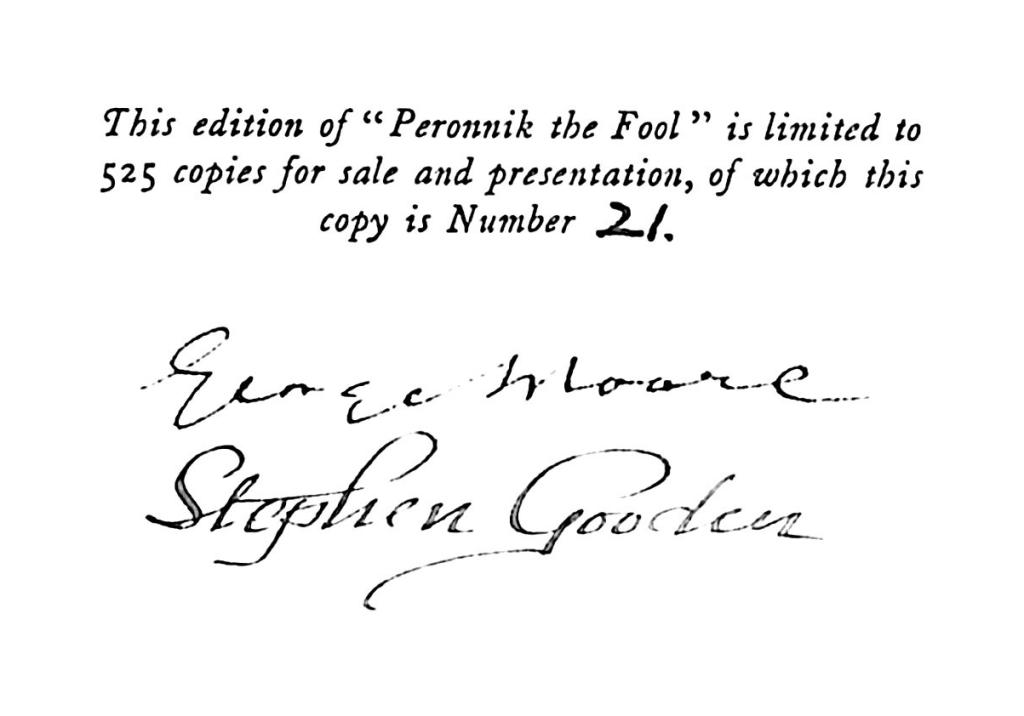 This edition of “Peronnik the Fool” is limited to
525 copies for sale and presentation, of which this
copy is Number 21.
George Moore
Stephen Gooden